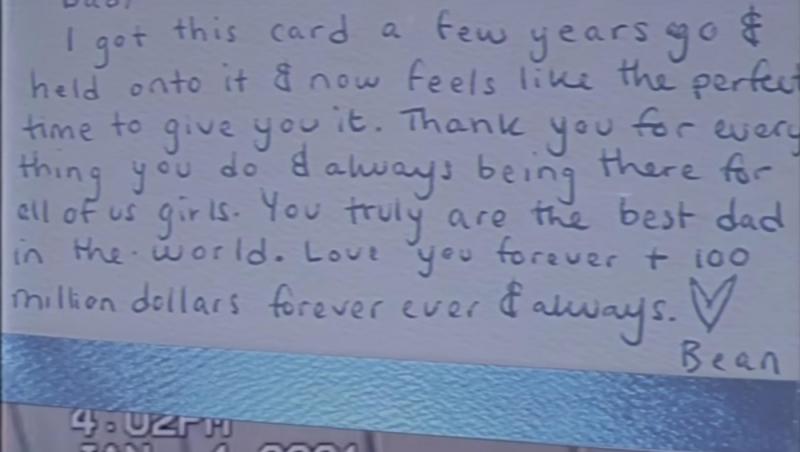 Dad,
I got this card a few years ago &
held onto it & now feels like the perfect
time to give you it. Thank you for every
thing you do & always being there for
all of us girls. You truly are the best dad
in the world. Love you forever + 100
million dollars forever ever & always. ♡
Bean
4:02PM
JAN